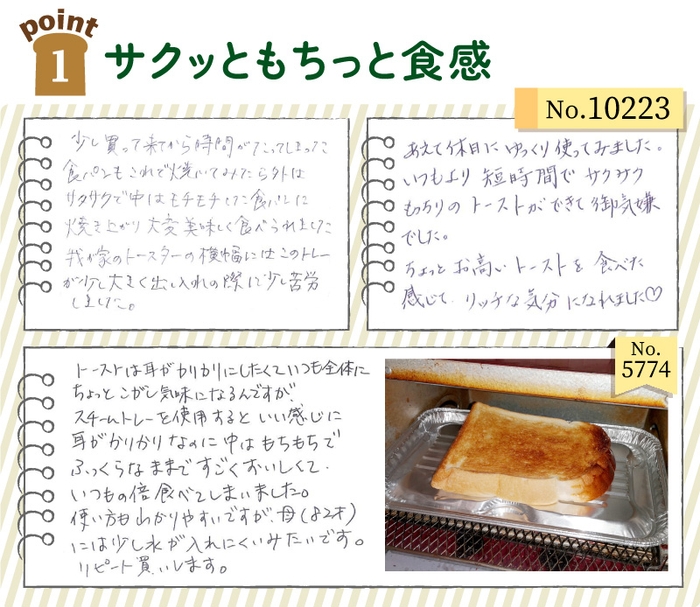 point
1
サクッともちっと食感
No.10223
少し買って来てから時間がたってしまった
食パンもこれで焼いてみたら外は
サクサクで中はモチモチした食パンに
焼き上がり大変美味しく食べられました
我が家のトースターの横幅にはこのトレー
が少し大きく出し入れの際に少し苦労
しました。
あえて休日にゆっくり使ってみました。
いつもより短時間でサクサク
もっちりのトーストができて御気嫌
でした。
ちょっとお高いトーストを食べた
感じで、リッチな気分になれました♡
No.
5774
トーストは耳がかりかりにしたくていつも全体に
ちょっとこがし気味になるんですが
スチームトレーを使用するといい感じに
耳がかりかりなのに中はもちもちで
ふっくらなままですごくおいしくて、
いつもの倍食べてしまいました。
使い方もわかりやすいですが、母(82才)
には少し水が入れにくいみたいです。
リピート買いします。